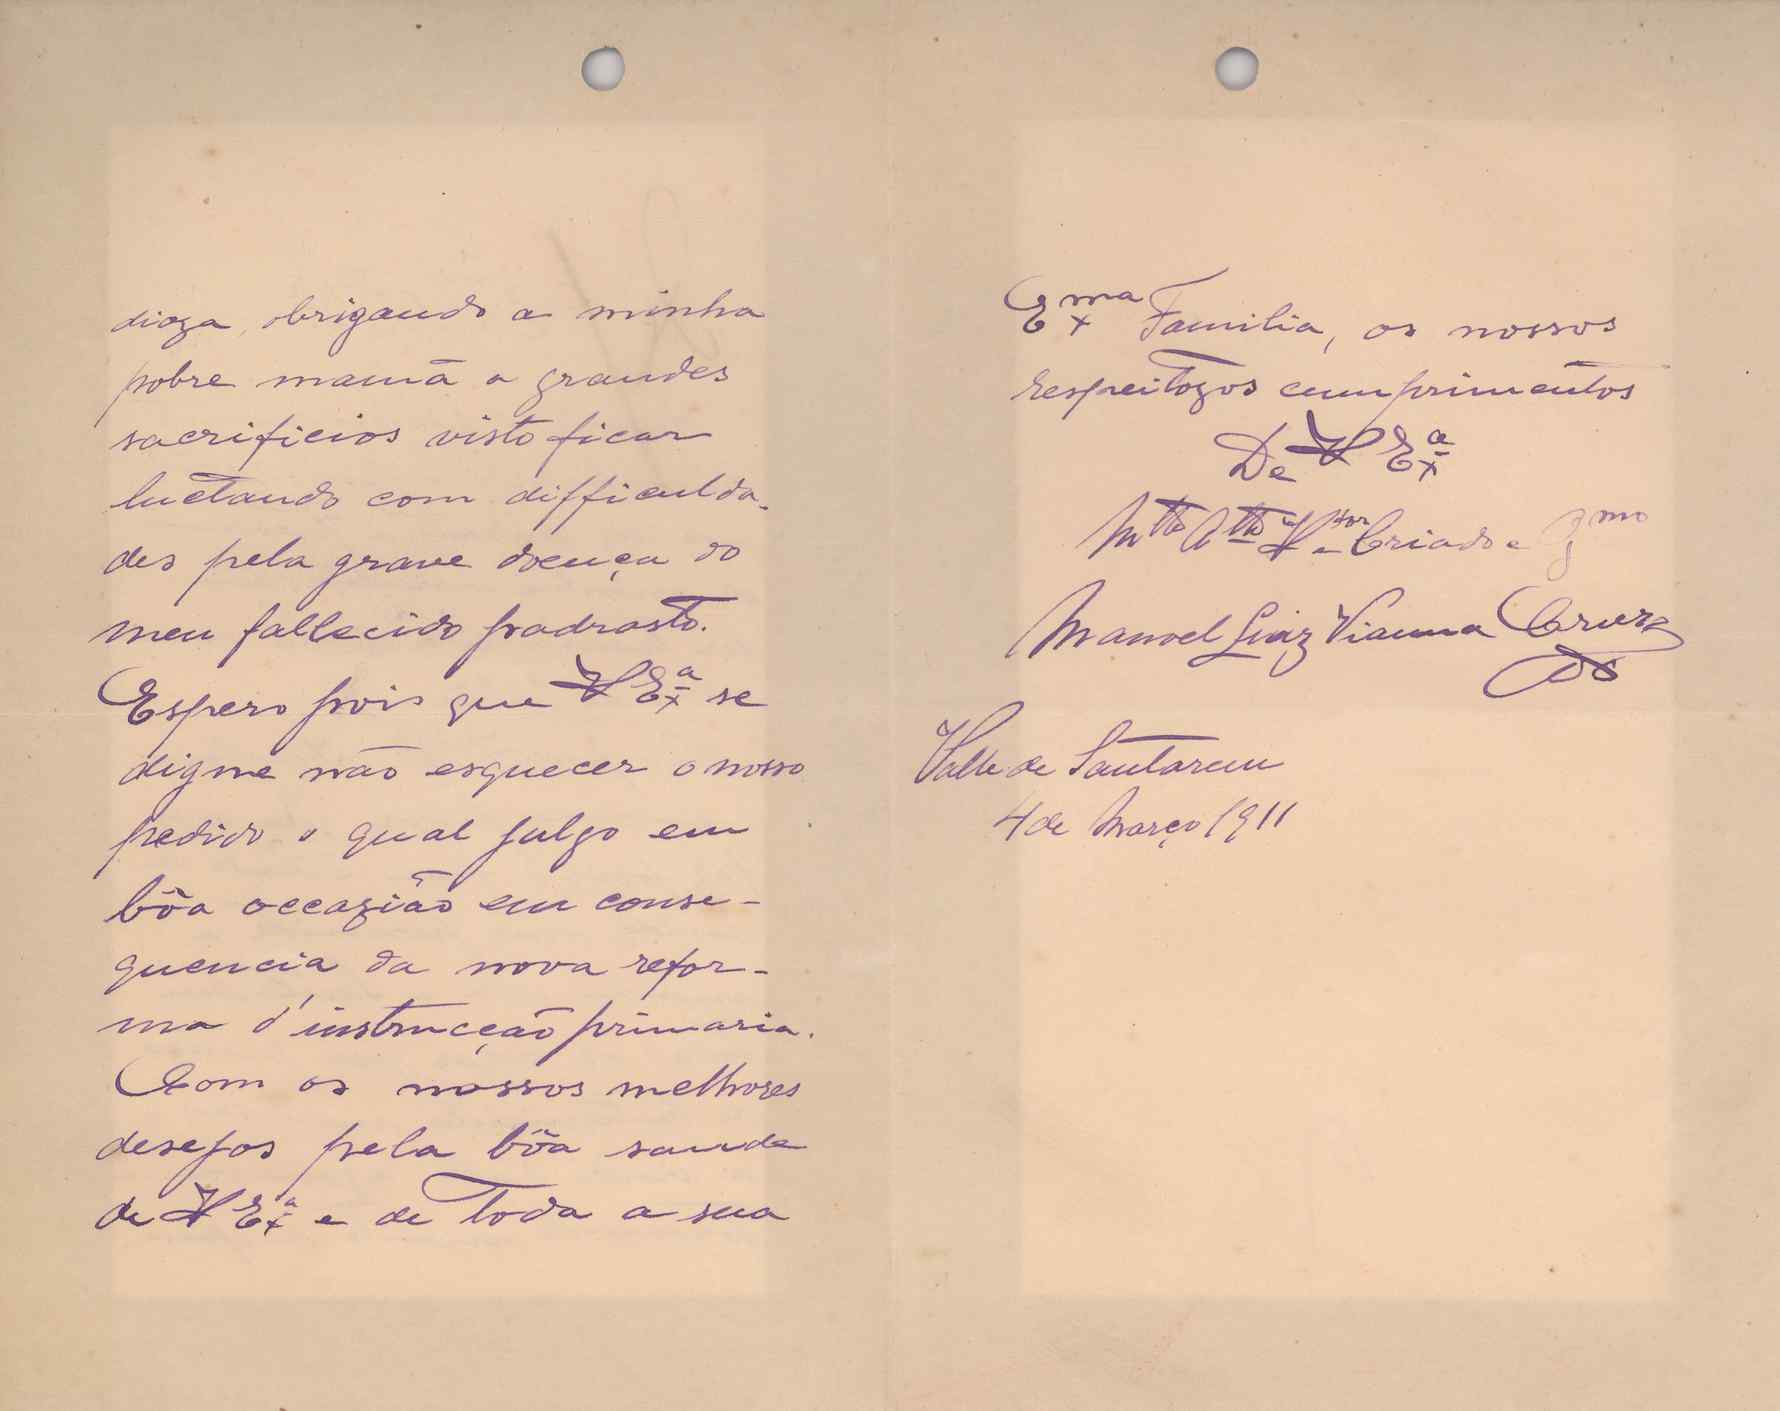 dioza, obrigando a minha
pobre mamã a grandes
sacrificios visto ficar
luctando com difficulda-
des pela grave doença do
meu fallecido padrasto.
Espero pois que V Exª se
digne não esquecer o nosso
pedido o qual julgo em
bôa occazião em conse-
quencia da nova refor-
ma d'instrucção primaria.
Com os nossos melhores
desejos pela bôa saude
de V Exª e de toda a sua
Exma Familia, os nossos
respeitozos cumprimentos
De V Exª
Mto Atto Vor e Criado e
Manoel Luiz Vianna Cruz
Valle de Santarem
4 de Março 1911